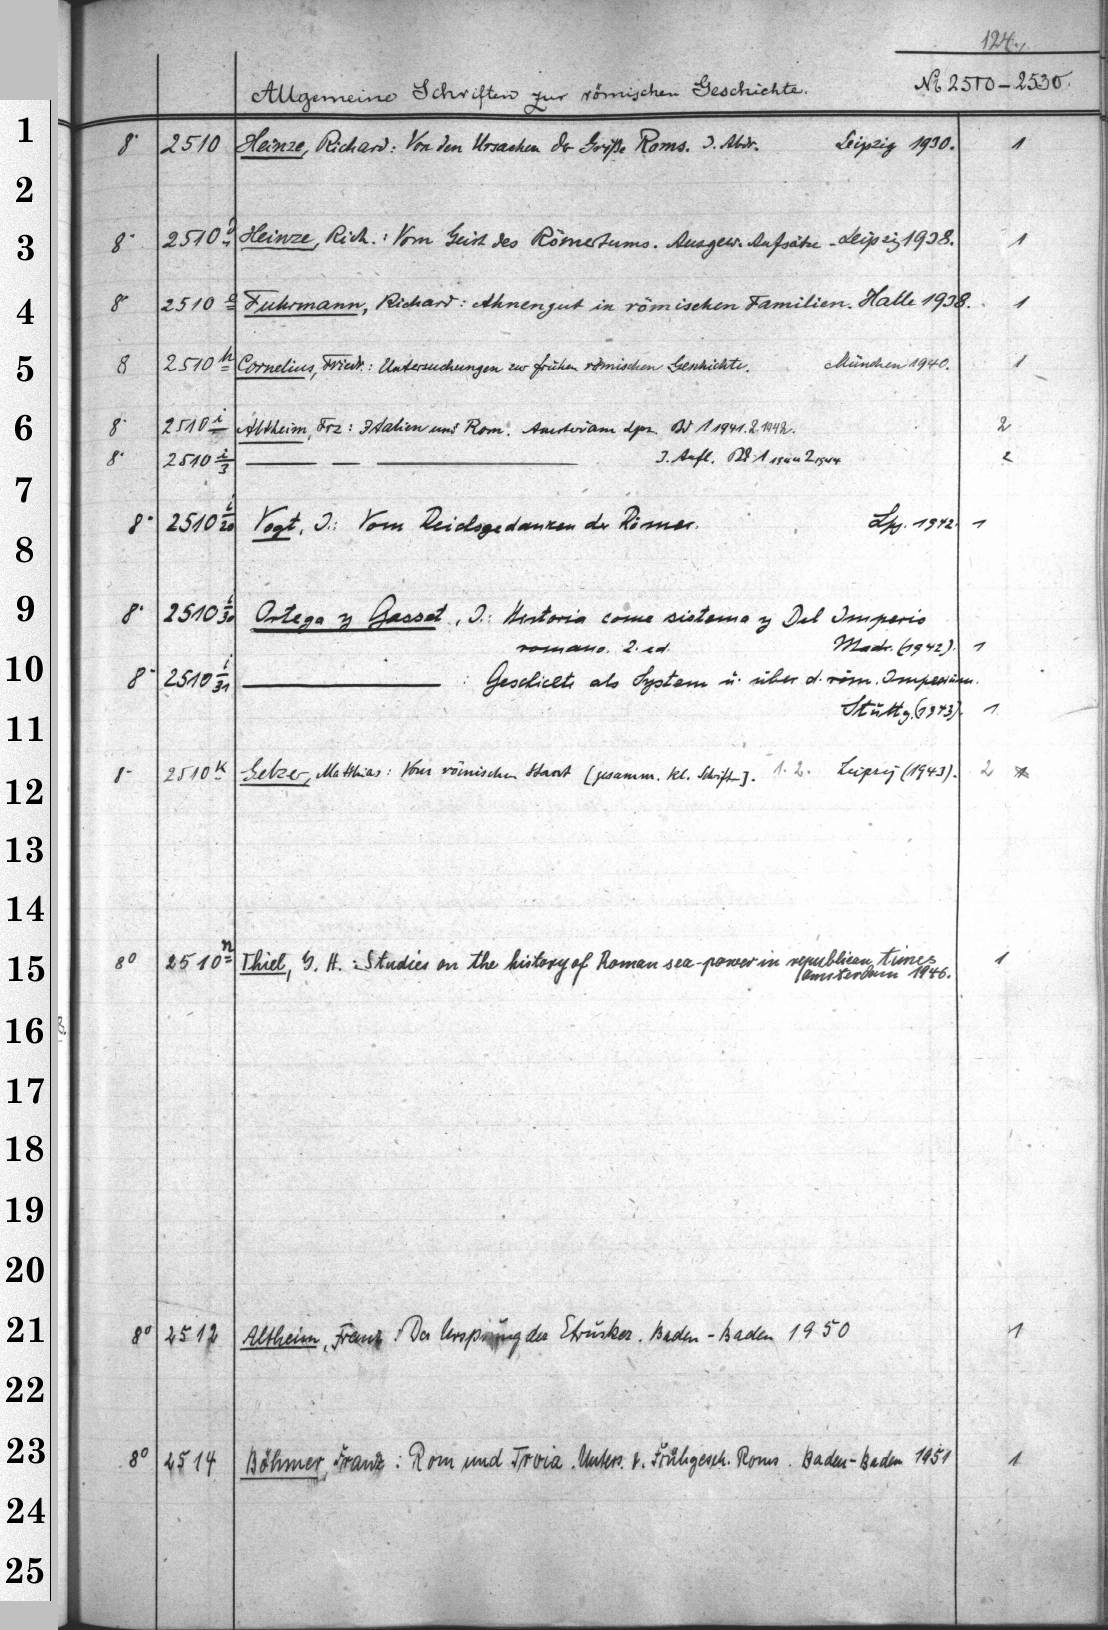 124.
Allgemeine Schriften zur römischen Geschichte. № 2510-2530.
1 8° 2510 Heinze, Richard: Von den Ursachen der Größe Roms. 3. Abdr. Leipzig 1930. 1
2
3 8° 2510 Heinze, Rich.: Vom Geist des Römertums. Ausgew. Aufsätze - Leipzig 1938. 1
4 8° 2510 e Fuhrmann, Richard: Ahnengut in römischen Familien. Halle 1938. 1
5 8 2510 h Cornelius, Friedr.: Untersuchungen zur frühen römischen Geschichte. München 1940. 1
6 8° 2510 i Altheim, Frz: Italien und Rom. Amsterdam Bd 1 1941. 2 1942. 2
8° 2510 i/3 — — — 3. Aufl. Bd. 1 2 1944 2
7
8° 2510 i/20 Vogt, J.: Vom Reichsgedanken der Römer. Lpz. 1942 1
8
9 8° 2510 i/30 Ortega y Gasset, J.: Historia como sistema y Del Imperio
romano. 2. ed. Madr. (1942). 1
10 8° 2510 i/31 — : Geschichte als System u. über d. röm. Imperium.
11 Stuttg. (1943). 1
12 8° 2510 k Gelzer, Matthias: Vom römischen Staat [gesamm. kl. Schrift.]. 1. 2. Leipzig (1943). 2
13
14
15 8° 2510 n Thiel, J. H.: Studies on the history of Roman sea-power in republican times
Amsterdam 1946. 1
16
17
18
19
20
21 8° 2512 Altheim, Franz: Der Ursprung der Etrusker. Baden-Baden 1950 1
22
23 8° 2514 Böhmer, Franz: Rom und Troia. Unters. z. Frühgesch. Roms. Baden-Baden 1951 1
24
25